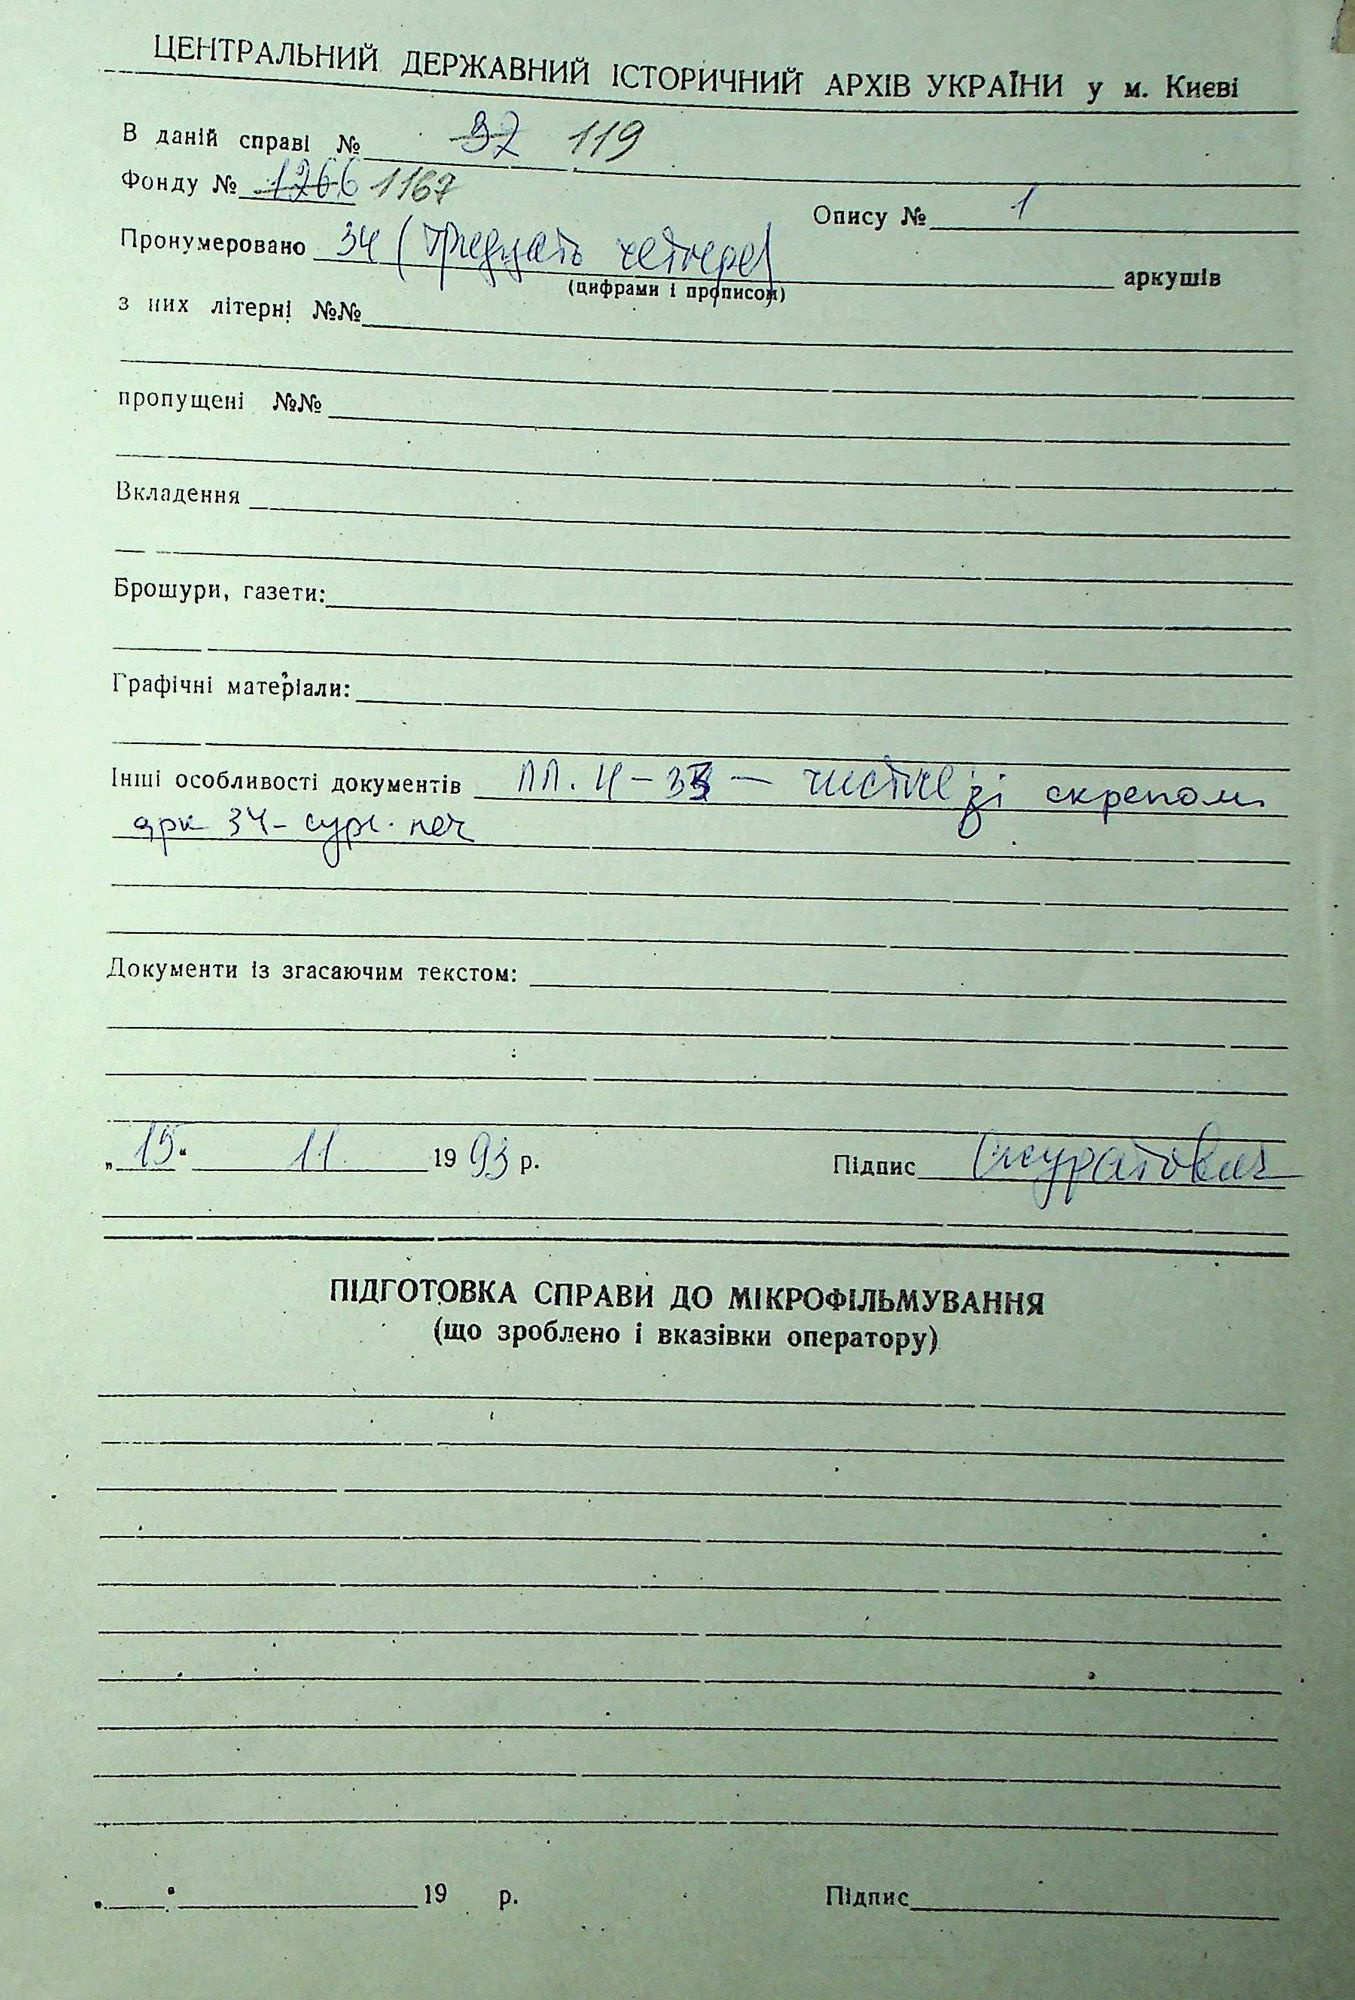 ЦЕНТРАЛЬНИЙ ДЕРЖАВНИЙ ІСТОРИЧНИЙ АРХІВ УКРАЇНИ у м. Києві
В даній справі № 32 119
Фонду № 1266 1167
Опису № 1
Пронумеровано 34 (тридцять чотири) аркушів
(цифрами і прописом)
з них літерні №№
пропущені №№
Вкладення
Брошури, газети:
Графічні матеріали:
Інші особливості документів 33 — чисті зі скрепом
арк 34 - сург. печ
Документи із згасаючим текстом:
„15“ 11. 19 93 р. Підпис Скуратович
ПІДГОТОВКА СПРАВИ ДО МІКРОФІЛЬМУВАННЯ
(що зроблено і вказівки оператору)
„ “ 19 р. Підпис